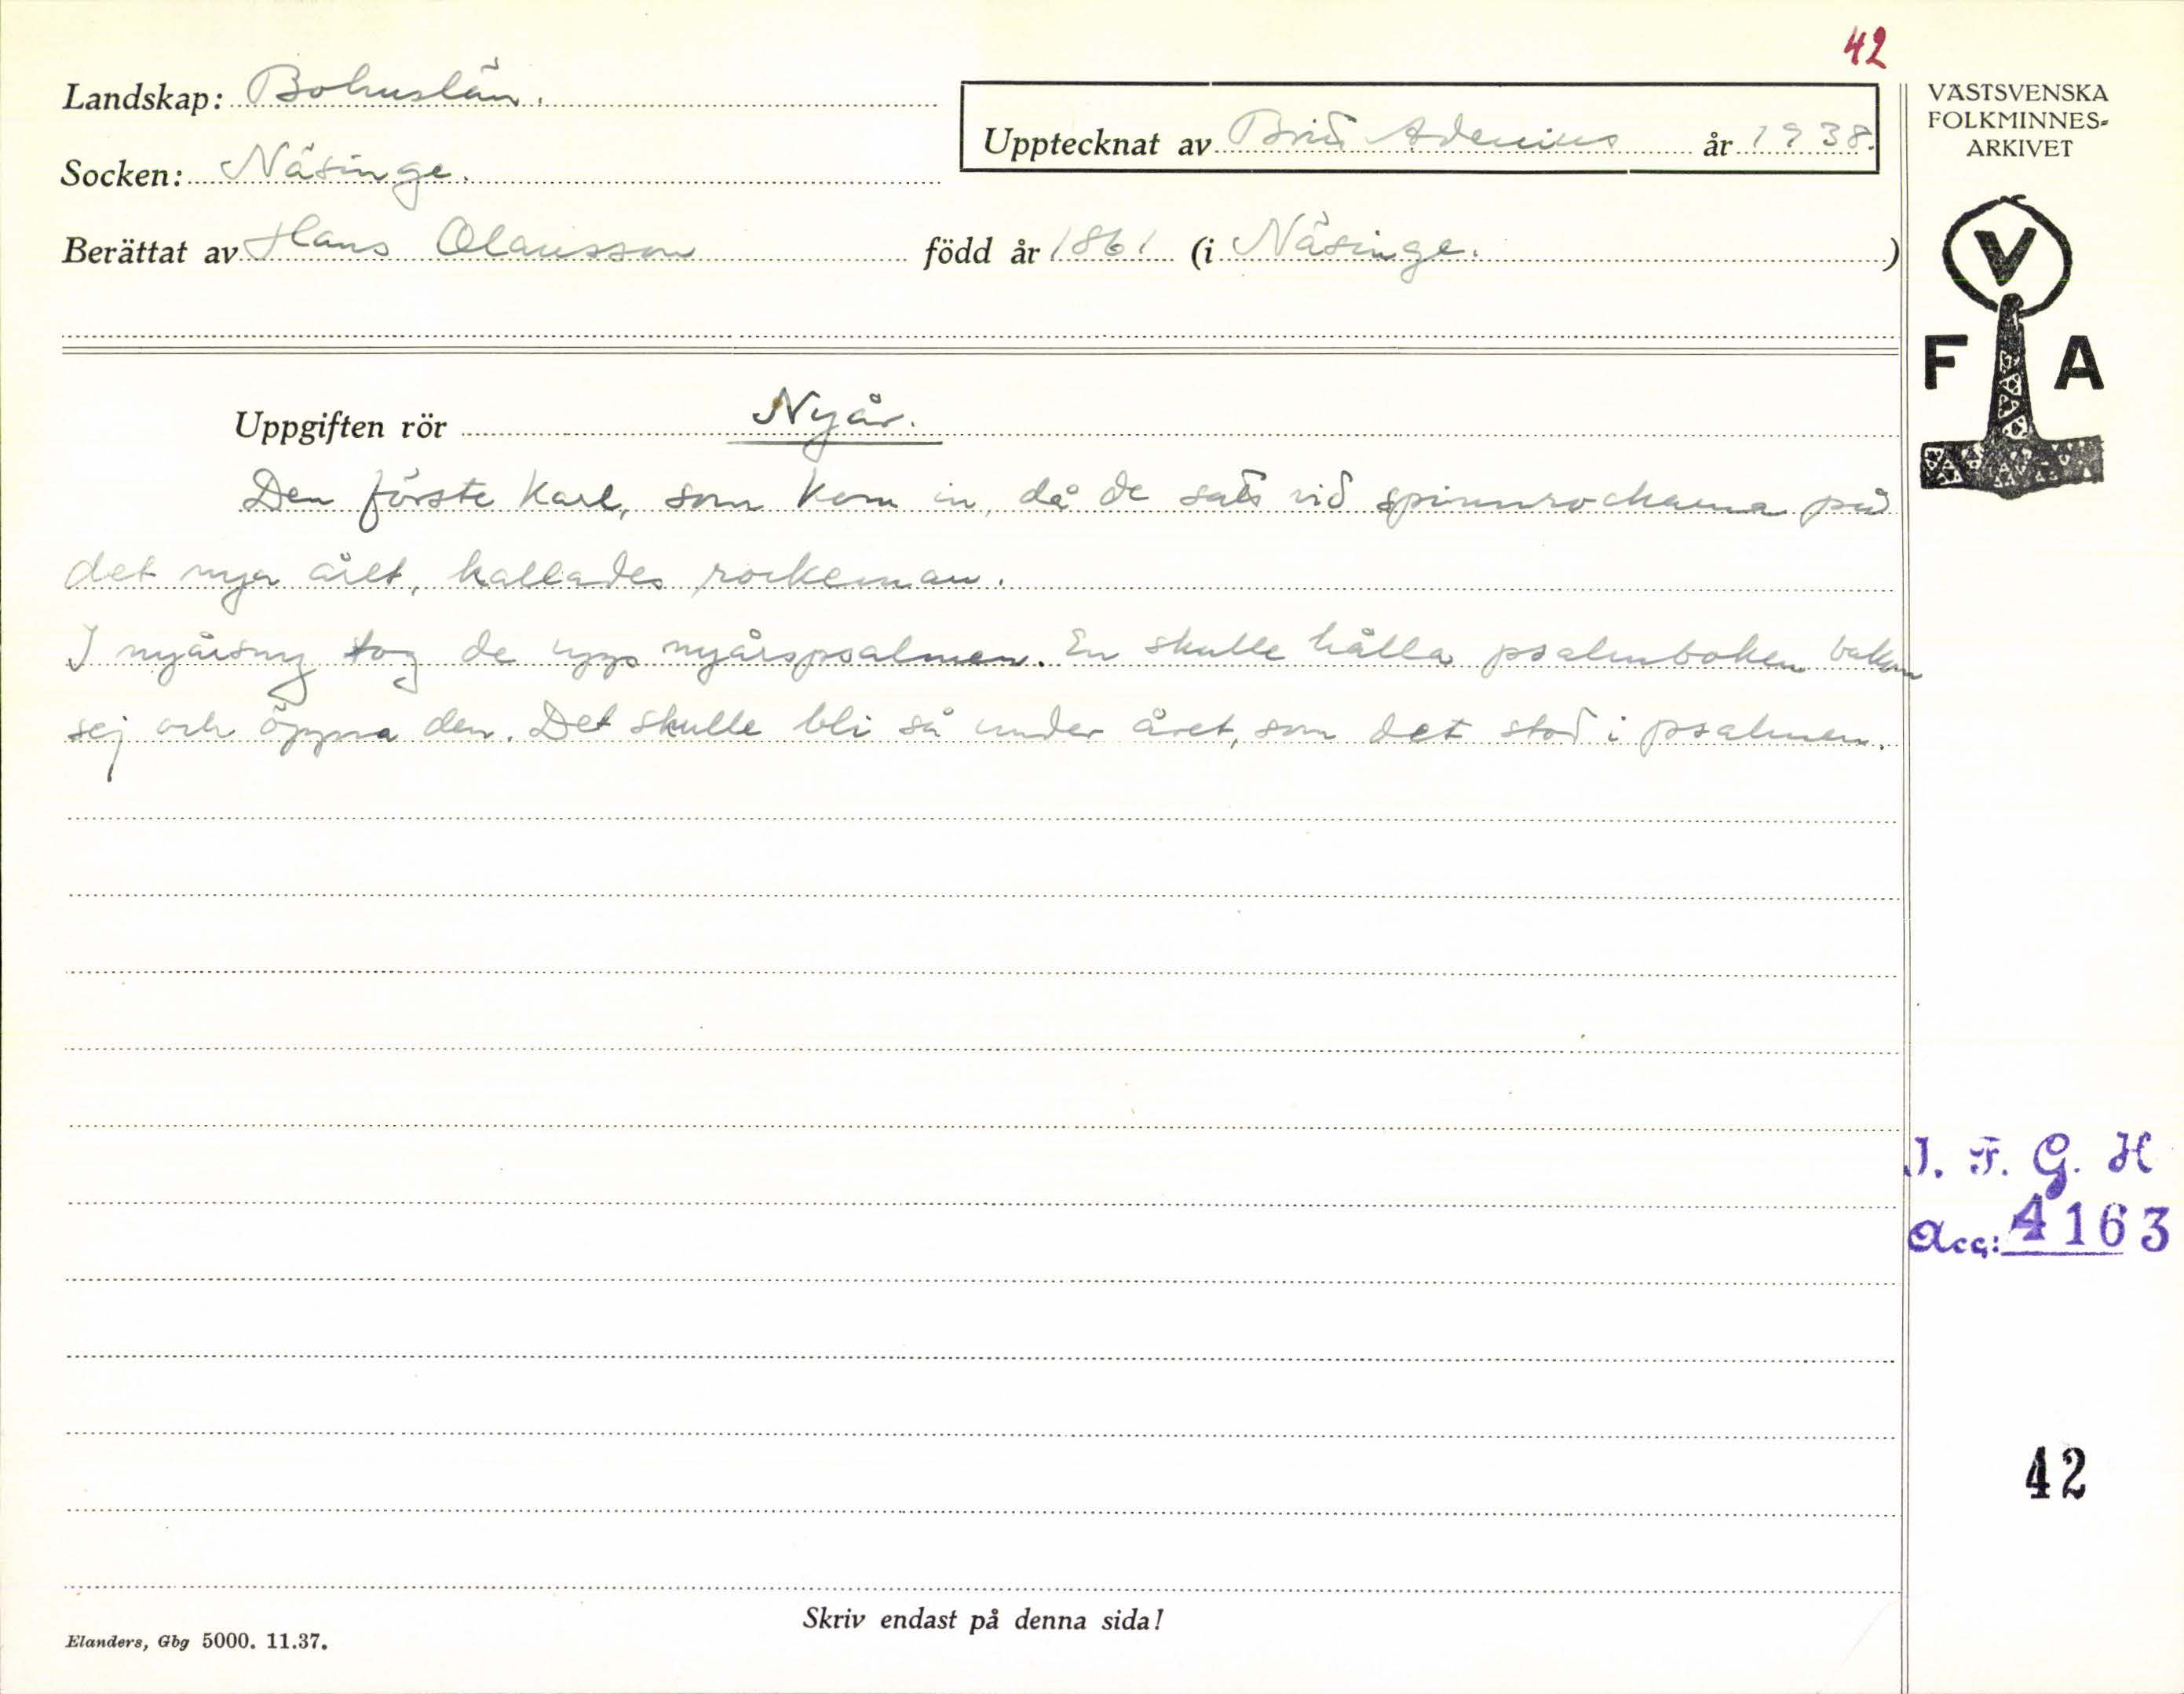 42
Landskap: Bohuslän.
Upptecknat av Brid Adenius år 1938.
Socken: Näsinge.
Berättat av Hans Olausson född år 1861 (i Näsinge.)
VÄSTSVENSKA
FOLKMINNES-
ARKIVET
V
F A
Uppgiften rör Nyår.
Den förste karl, som kom in, då de satt vid spinnrockarna på
det nya året, kallades rockeman.
I nyårsny tog de upp nyårspsalmen. En skulle hålla psalmboken bakom
sej och öppna den. Det skulle bli så under året, som det stod i psalmen.
I. F. G. H
Acc: 4163
42
Skriv endast på denna sida!
Elanders, Gbg 5000. 11.37.